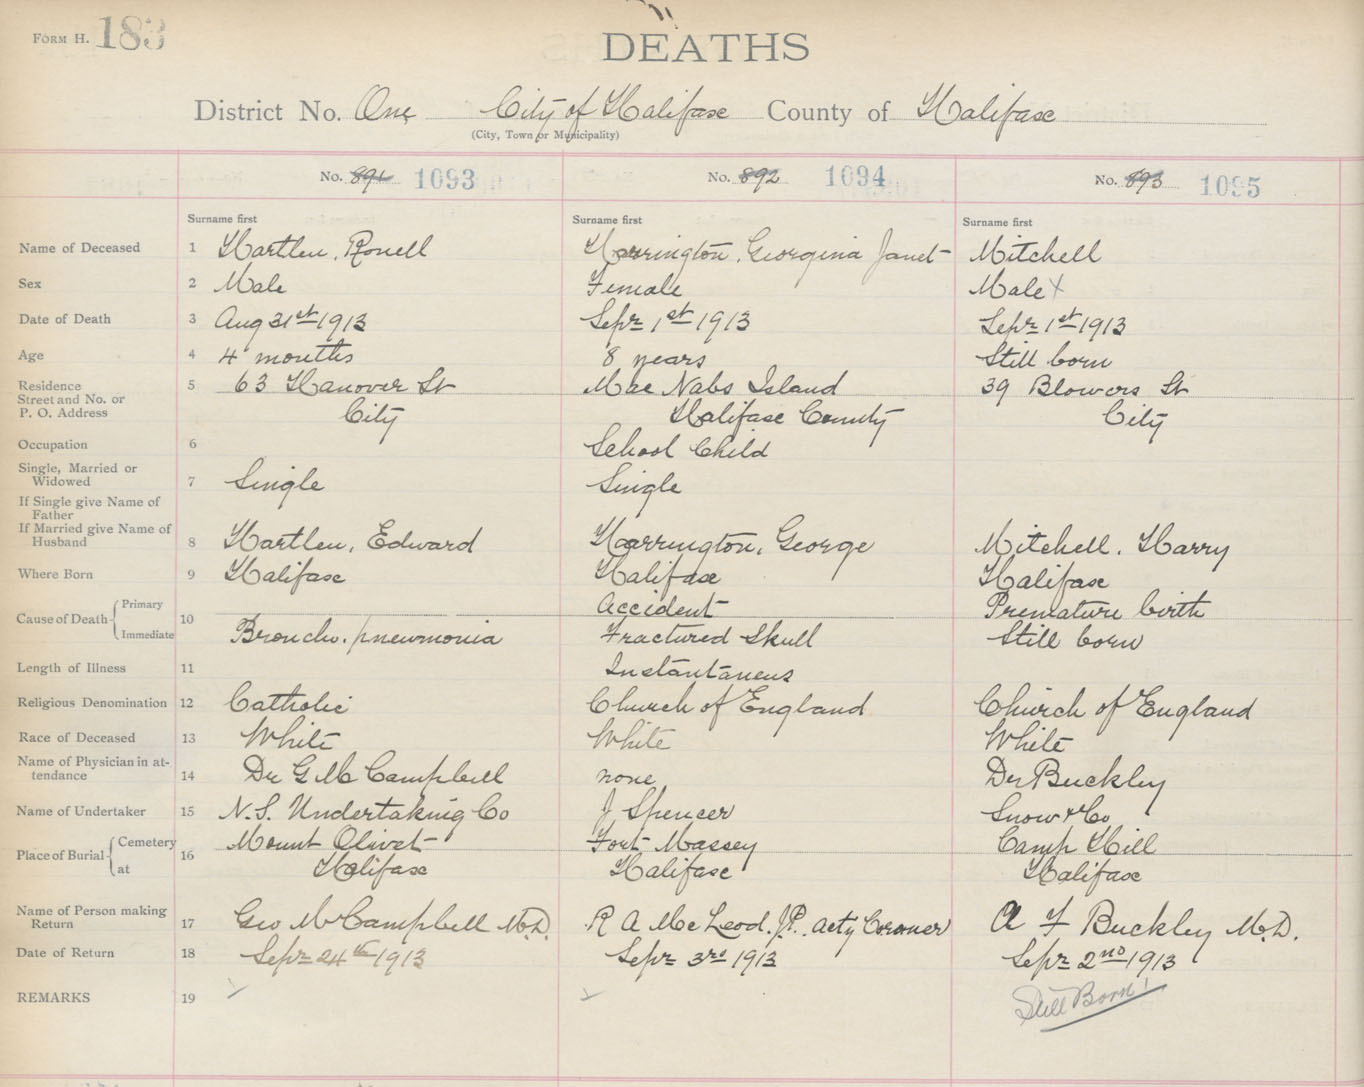 FORM H. 183
DEATHS
District No. One City of Halifax County of Halifax
(City, Town or Municipality)
No. 891 1093 No. 892 1094 No. 893 1095
Surname first Surname first Surname first
Name of Deceased 1 Hartlen, Ronell Harrington, Georgina Janet Mitchell
Sex 2 Male Female Male X
Date of Death 3 Aug 31st 1913 Sepr 1st 1913 Sepr 1st 1913
Age 4 4 months 8 years Still born
Residence 5 63 Hanover St Mac Nabs Island 39 Blowers St
Street and No. or
P. O. Address City Halifax County City
Occupation 6 School Child
Single, Married or
Widowed 7 Single Single
If Single give Name of
Father
If Married give Name of
Husband 8 Hartlen, Edward Harrington, George Mitchell, Harry
Where Born 9 Halifax Halifax Halifax
Cause of Death Primary 10 Accident Premature birth
Immediate Broncho. pneumonia Fractured Skull Still born
Length of Illness 11 Instantaneus
Religious Denomination 12 Catholic Church of England Church of England
Race of Deceased 13 White White White
Name of Physician in at-
tendance 14 Dr G M Campbell none Dr Buckley
Name of Undertaker 15 N.S. Undertaking Co J Spencer Snow & Co
Place of Burial Cemetery 16 Mount Olivet Fort Massey Camp Hill
at Halifax Halifax Halifax
Name of Person making
Return 17 Geo M Campbell M.D. R A Mc Leod. J.P. Actg Coroner A F Buckley M.D.
Date of Return 18 Sepr 24th 1913 Sepr 3rd 1913 Sepr 2nd 1913
REMARKS 19 Still Born!